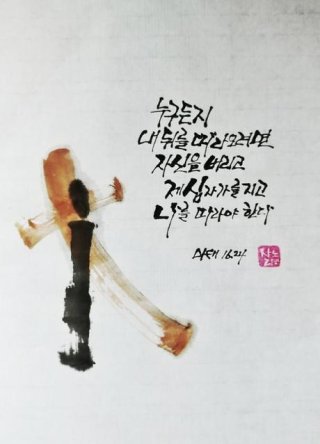 누구든지
내 뒤를 따라오려면
자신을 버리고
제 십자가를 지고
나를 따라야 한다
마태 16.24